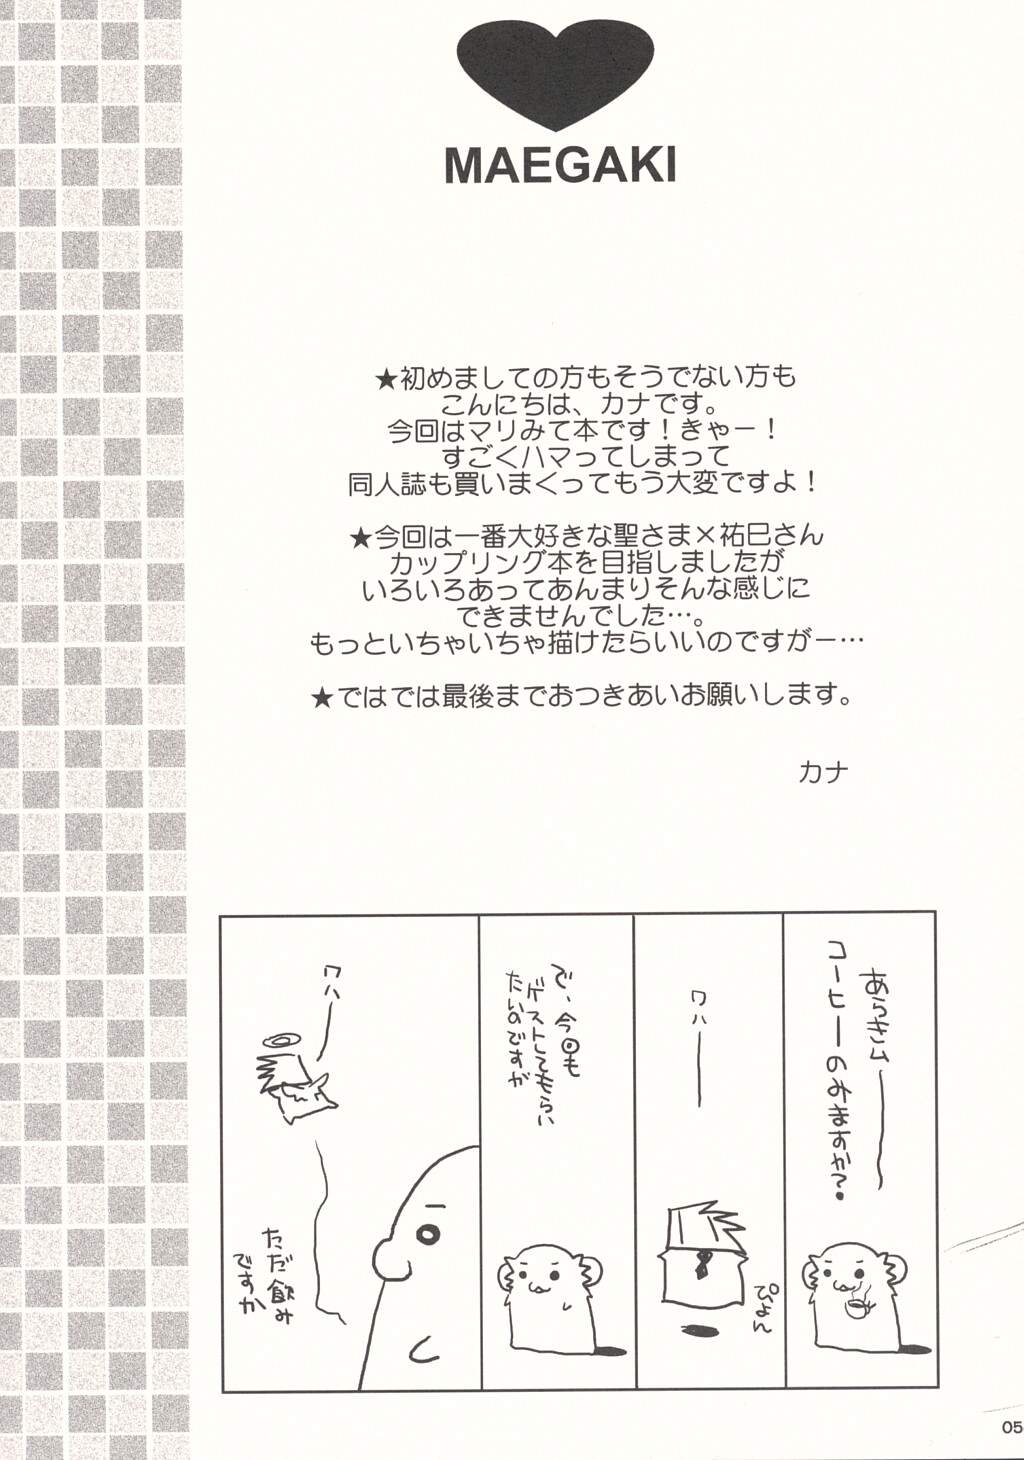 MAEGAKI
★初めましての方もそうでない方も
こんにちは、カナです。
今回はマリみて本です！きゃー！
すごくハマってしまって
同人誌も買いまくってもう大変ですよ！
★今回は一番大好きな聖さま×祐巳さん
カップリング本を目指しましたが
いろいろあってあんまりそんな感じに
できませんでした…。
もっといちゃいちゃ描けたらいいのですがー…
★ではでは最後までおつきあいお願いします。
カナ
あらきムー
コーヒーのみますか?
ワハー
ぴょん
で、今回も
ゲストしてもらい
たいのですが
ワハー
ただ飲み
ですか
05